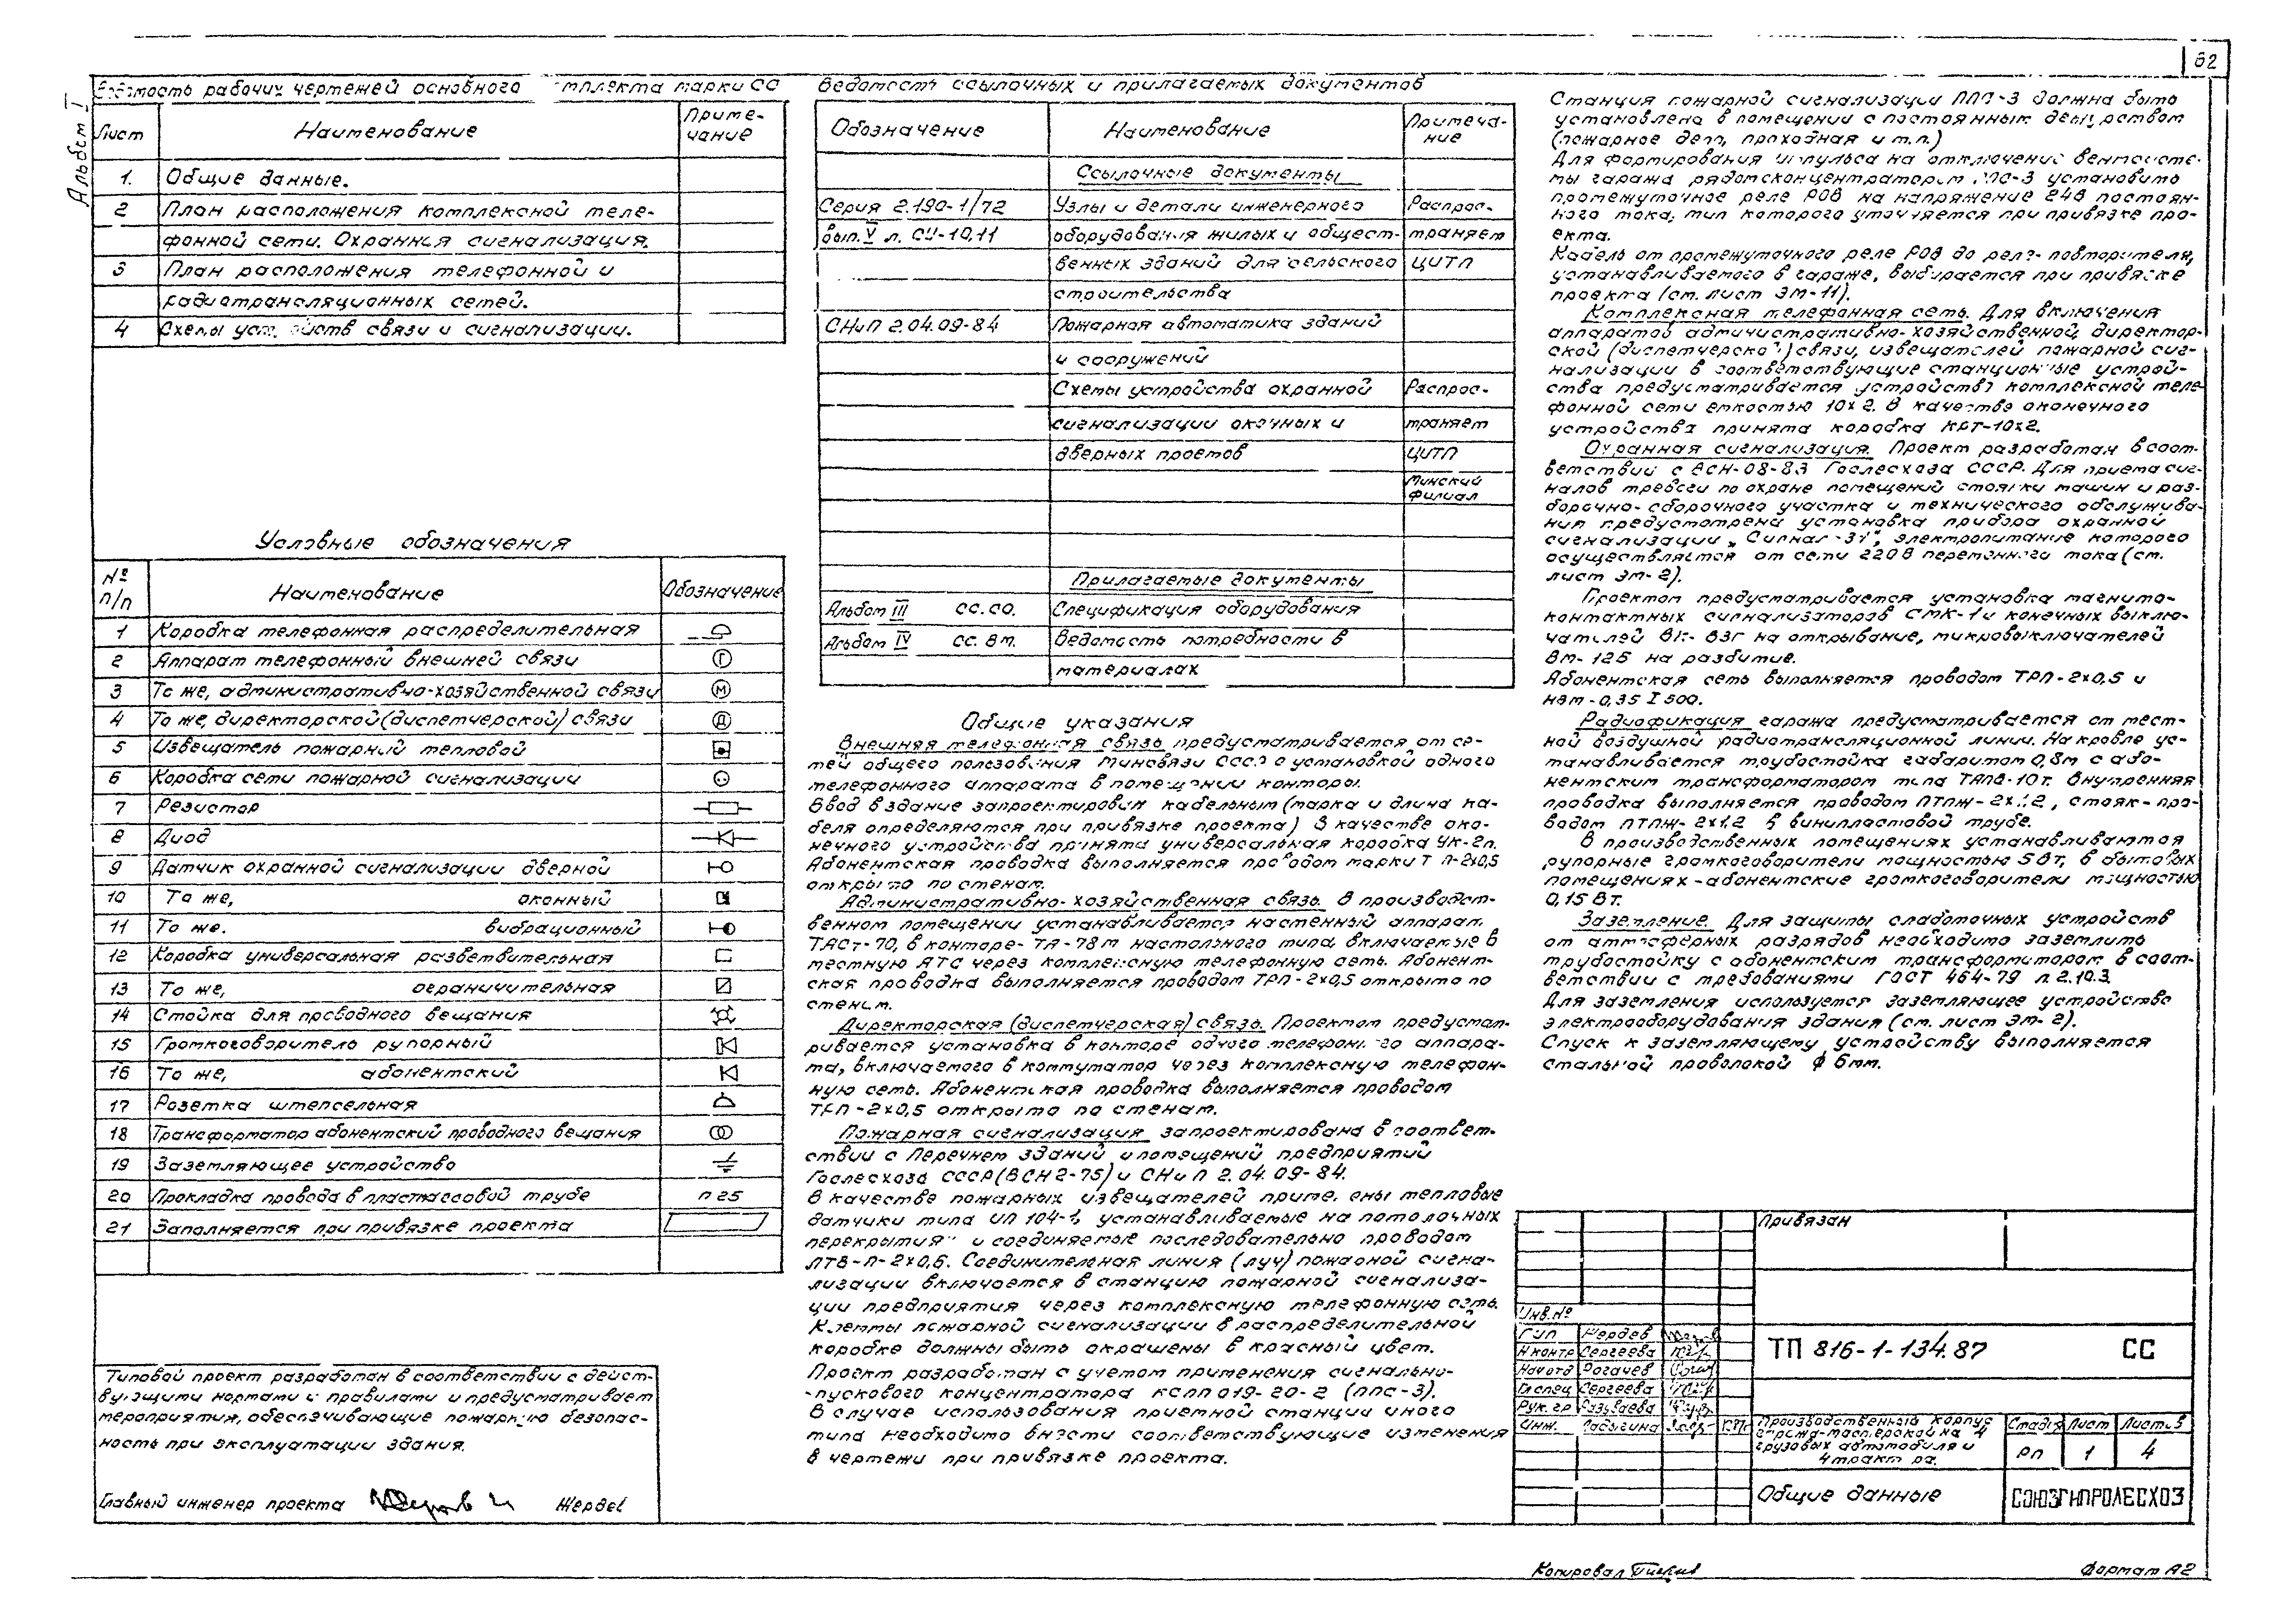 62
Альбом I
Ведомость рабочих чертежей основного комплекта марки СС
Лист Наименование Приме-
чание
1. Общие данные.
2 План расположения комплексной теле-
фонной сети. Охранная сигнализация.
3 План расположения телефонной и
радиотрансляционных сетей.
4 Схемы устройств связи и сигнализации.
Условные обозначения
№
п/п Наименование Обозначение
1 Коробка телефонная распределительная
2 Аппарат телефонный внешней связи Г
3 То же, административно-хозяйственной связи М
4 То же, директорской (диспетчерской) связи Д
5 Извещатель пожарный тепловой
6 Коробка сети пожарной сигнализации
7 Резистор
8 Диод
9 Датчик охранной сигнализации дверной
10 То же, оконный
11 То же. вибрационный
12 Коробка универсальная разветвительная
13 То же, ограничительная
14 Стойка для проводного вещания
15 Громкоговоритель рупорный
16 То же, абонентский
17 Розетка штепсельная
18 Трансформатор абонентский проводного вещания
19 Заземляющее устройство
20 Прокладка провода в пластмассовой трубе п 25
21 Заполняется при привязке проекта
Типовой проект разработан в соответствии с дейст-
вующими нормами и правилами и предусматривает
мероприятия, обеспечивающие пожарную безопас-
ность при эксплуатации здания.
Главный инженер проекта Жердев
Ведомость ссылочных и прилагаемых документов
Обозначение Наименование Примеча-
ние
Ссылочные документы
Серия 2.190-1/72 Узлы и детали инженерного Распрос-
вып. V л. СУ-10,11 оборудования жилых и общест- траняет
венных зданий для сельского ЦИТП
строительства
СНиП 2.04.09-84 Пожарная автоматика зданий
и сооружений
Схемы устройства охранной Распрос-
сигнализации оконных и траняет
дверных проемов ЦИТП
Минский
филиал
Прилагаемые документы
Альбом III СС.СО. Спецификация оборудования
Альбом IV СС. Вм. Ведомость потребности в
материалах
Общие указания
Внешняя телефонная связь предусматривается от се-
тей общего пользования Минсвязи СССР с установкой одного
телефонного аппарата в помещении конторы.
Ввод в здание запроектирован кабельным (марка и длина ка-
беля определяются при привязке проекта) В качестве око-
нечного устройства принята универсальная коробка УК-2п.
Абонентская проводка выполняется проводом марки Т П-2х0,5
открыто по стенам.
Административно-хозяйственная связь. В производст-
венном помещении устанавливается настенный аппарат
ТАСт-70, в конторе- ТА-78м настольного типа, включаемые в
местную АТС через комплексную телефонную сеть. Абонент-
ская проводка выполняется проводом ТРП-2х0,5 открыто по
стенам.
Директорская (диспетчерская) связь. Проектом предусмат-
ривается установка в конторе одного телефонного аппара-
та, включаемого в коммутатор через комплексную телефон-
ную сеть. Абонентская проводка выполняется проводом
ТРП-2х0,5 открыто по стенам.
Пожарная сигнализация запроектирована в соответ-
ствии с Перечнем зданий и помещений предприятий
Гослесхоза СССР (ВСН 2-75) и СНиП 2.04.09-84.
В качестве пожарных извещателей применены тепловые
датчики типа ИП 104-1, устанавливаемые на потолочных
перекрытиях и соединяемые последовательно проводом
ЛТВ-П-2х0,6. Соединительная линия (луч) пожарной сигна-
лизации включается в станцию пожарной сигнализа-
ции предприятия через комплексную телефонную сеть.
Клеммы пожарной сигнализации в распределительной
коробке должны быть окрашены в красный цвет.
Проект разработан с учетом применения сигнально-
-пускового концентратора КСПП 019-20-2 (ППС-3).
В случае использования приемной станции иного
типа необходимо внести соответствующие изменения
в чертежи при привязке проекта.
Станция пожарной сигнализации ППС-3 должна быть
установлена в помещении с постоянным дежурством
(пожарное депо, проходная и т.п.)
Для формирования импульса на отключение вентсисте-
мы гаража рядом с концентратором ППС-3 установить
промежуточное реле РОВ на напряжение 24В постоян-
ного тока, тип которого уточняется при привязке про-
екта.
Кабель от промежуточного реле РОВ до реле-повторителя,
устанавливаемого в гараже, выбирается при привязке
проекта (см. лист ЭМ-11).
Комплексная телефонная сеть. Для включения
аппаратов административно-хозяйственной, директор-
ской (диспетчерской) связи, извещателей пожарной сиг-
нализации в соответствующие станционные устрой-
ства предусматривается устройство комплексной теле-
фонной сети емкостью 10х2. В качестве оконечного
устройства принята коробка КРТ-10х2.
Охранная сигнализация. Проект разработан в соот-
ветствии с ВСН-08-83 Гослесхоза СССР. Для приема сиг-
налов тревоги по охране помещений стоянки машин и раз-
борочно-сборочного участка и технического обслужива-
ния предусмотрена установка прибора охранной
сигнализации „Сигнал-31", электропитание которого
осуществляется от сети 220В переменного тока (см.
лист ЭМ-2).
Проектом предусматривается установка магнито-
контактных сигнализаторов СМК-1 и конечных выклю-
чателей ВК-83Г на открывание, микровыключателей
ВМ-125 на разбитие.
Абонентская сеть выполняется проводом ТРП-2х0,5 и
НВм-0,35 I 500.
Радиофикация гаража предусматривается от мест-
ной воздушной радиотрансляционной линии. На кровле ус-
танавливается трубостойка габаритом 0,8м с або-
нентским трансформатором типа ТАПВ-10т. Внутренняя
проводка выполняется проводом ПТПЖ-2х1.2, стояк-про-
водом ПТПЖ-2х1,2 в винипластовой трубе.
В производственных помещениях устанавливаются
рупорные громкоговорители мощностью 5Вт, в бытовых
помещениях-абонентские громкоговорители мощностью
0,15 Вт.
Заземление. Для защиты слаботочных устройств
от атмосферных разрядов необходимо заземлить
трубостойку с абонентским трансформатором в соот-
ветствии с требованиями ГОСТ 464-79 п.2.10.3.
Для заземления используется заземляющее устройство
электрооборудования здания (см. лист ЭМ-2).
Спуск к заземляющему устройству выполняется
стальной проволокой ϕ 6мм.
Привязан
Инв.№
ГИП Жердев
Н.контр Сергеева
Нач.отд Рогачев
Гл.спец Сергеева
Рук.гр Разуваева
Инж.
ТП 816-1-134.87 СС
Производственный корпус
гаража-мастерской на 4
грузовых автомобиля и
4 трактора.
Стадия Лист Листов
РП 1 4
Общие данные
СОЮЗГИПРОЛЕСХОЗ
Копировал
Формат А2